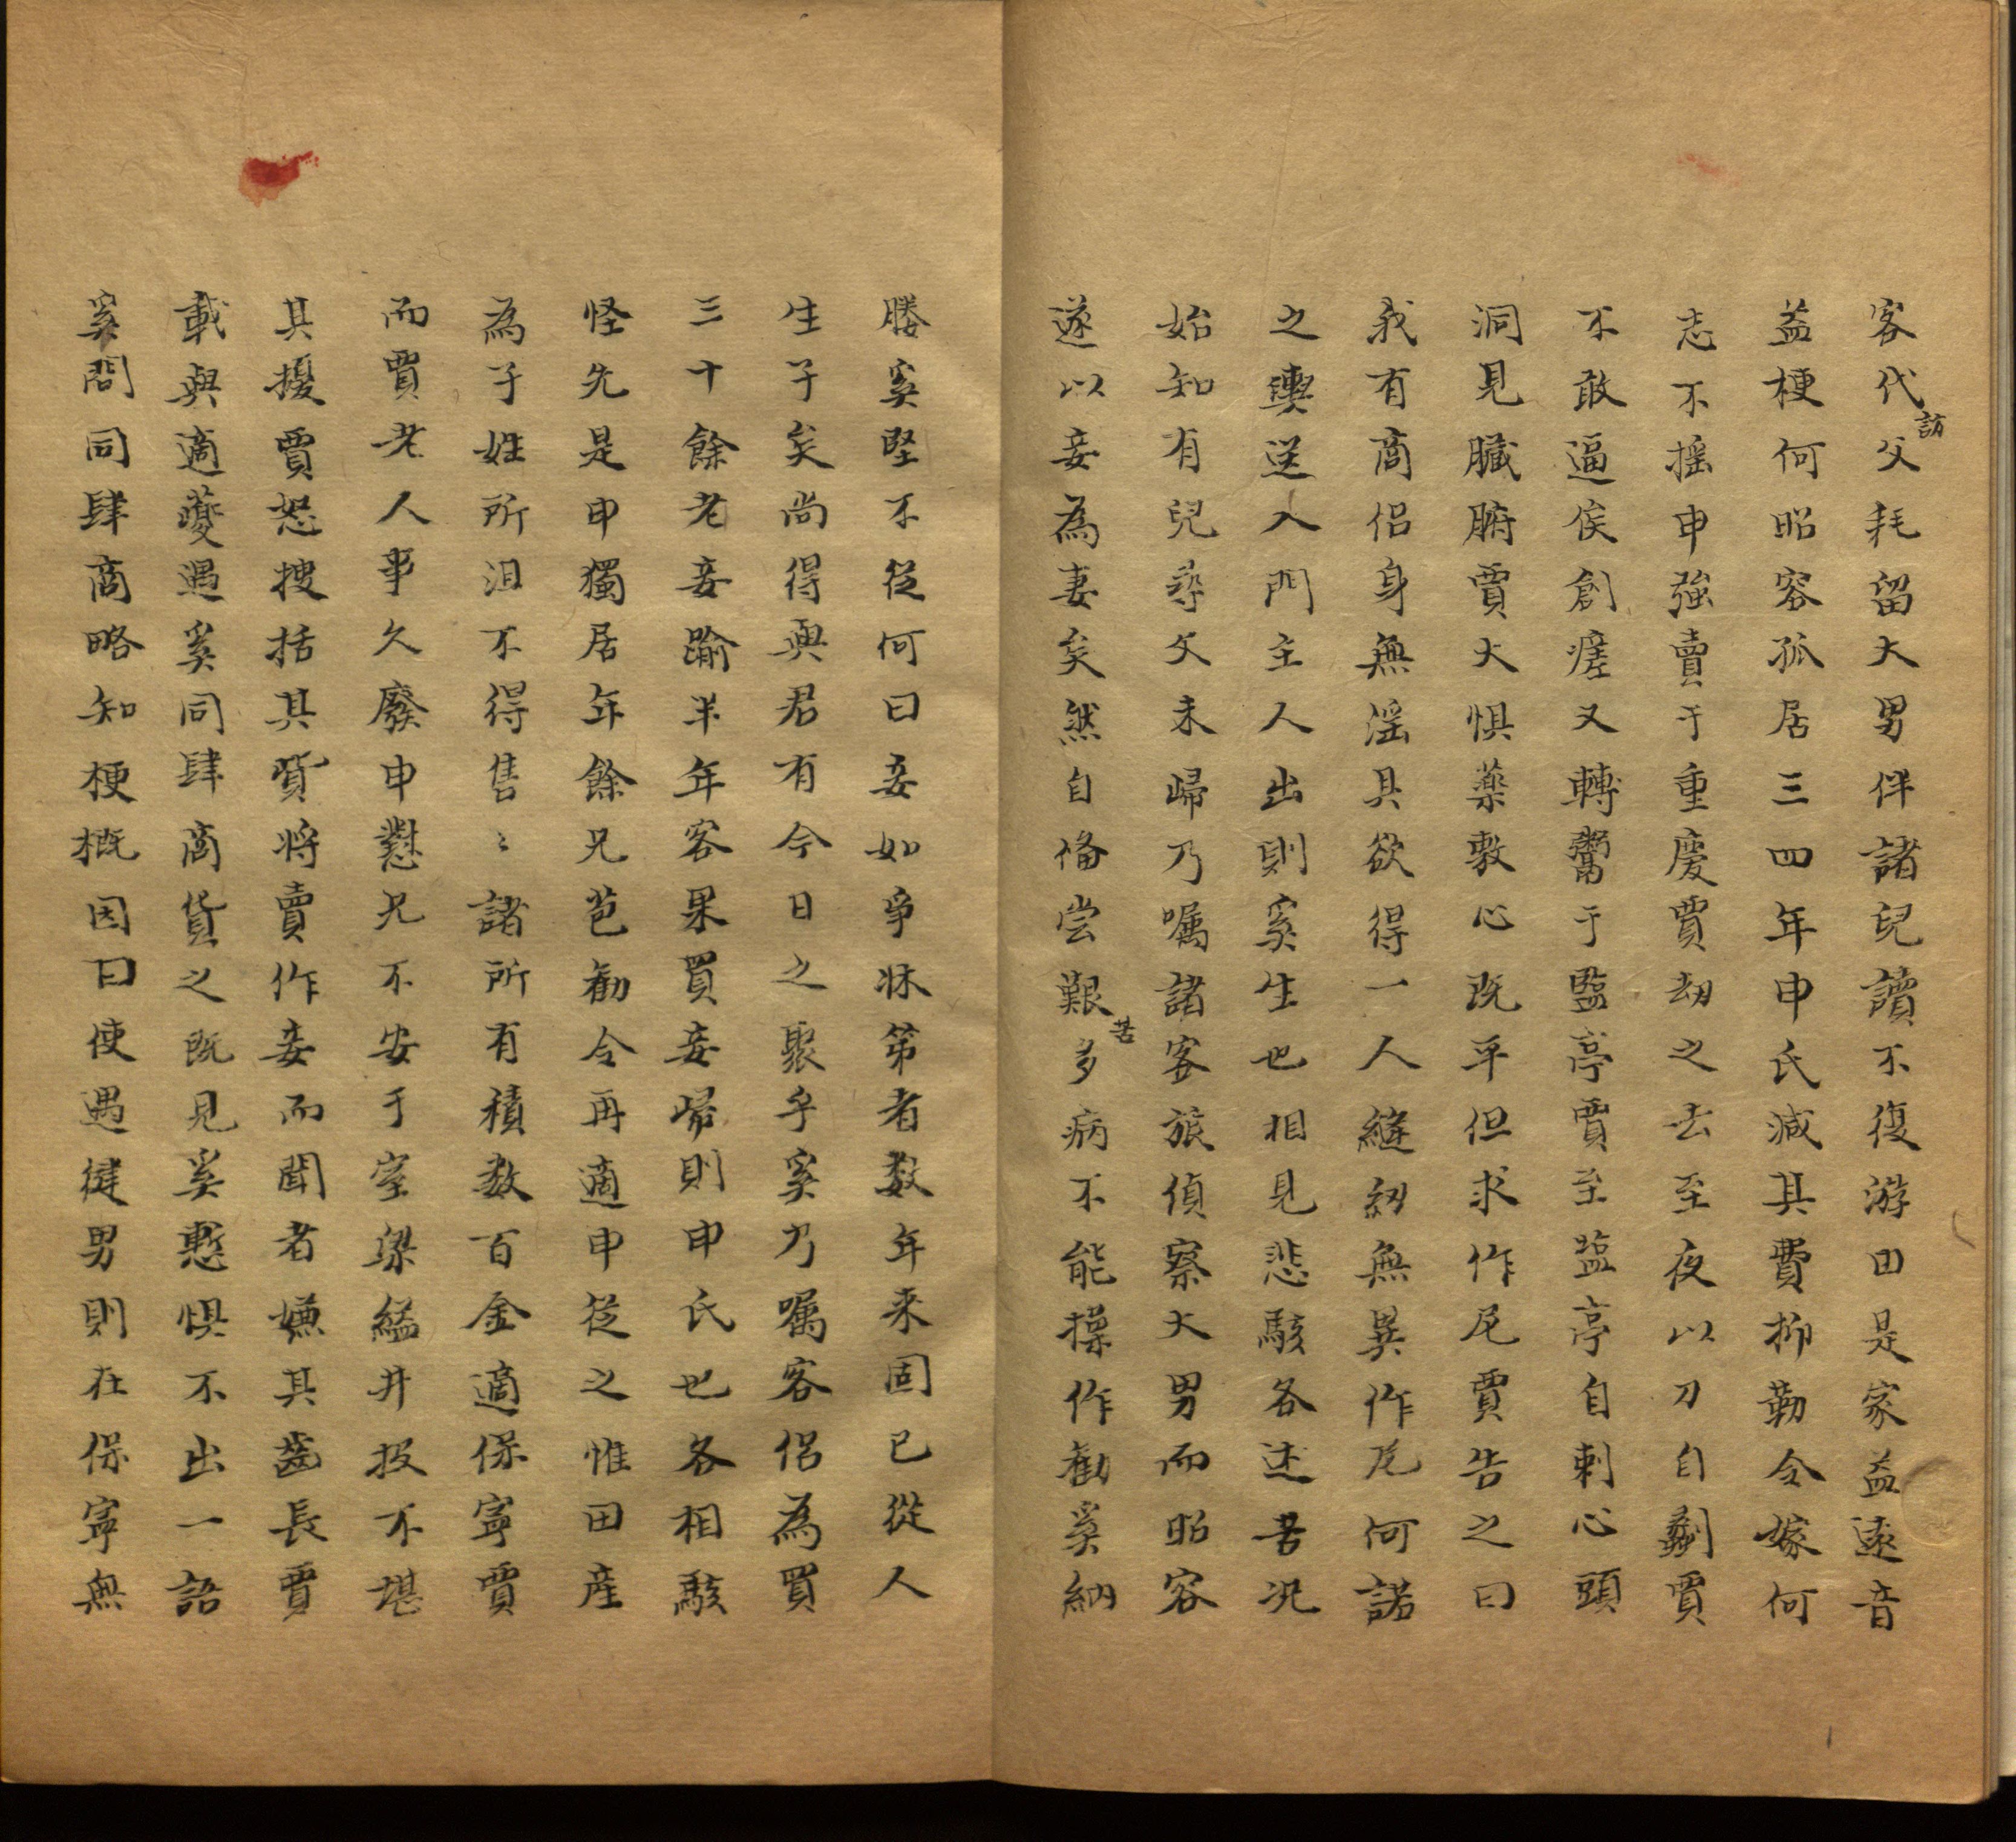 客代訪父耗留大男伴諸兒讀不復游田是家益遠音
益梗何昭容孤居三四年申氏減其費抑勒令嫁何
志不摇申強賣于重慶賈刼之去至夜以刀自劙賈
不敢逼俟創瘥又轉鬻于監亭賈至盐亭自刺心頭
洞見臟腑賈大惧藥敷心既平但求作尼賈告之曰
我有商侣身無淫具欲得一人縫紉無異作尼何諾
之輿送入門主人出則奚生也相見悲駭各述苦况
始知有兒尋父未歸乃嘱諸客旅偵察大男而昭容
遂以妾為妻矣然自偹尝艱苦多病不能操作勸奚納
媵奚堅不從何曰妾如爭牀第者数年来固已從人
生子矣尚得與君有今日之聚乎奚乃嘱客侣為買
三十餘老妾踰半年客果買妾歸則申氏也各相駭
怪先是申獨居年餘兄苞勸令再適申從之惟田産
為子姓所沮不得售〻諸所有積数百金適保寧賈
而賈老人事久廢申懟兄不安于室梁縊井投不堪
其擾賈怒搜括其貲將賣作妾而聞者嫌其齒長賈
載與適夔遇奚同肆商貨之既見奚慙惧不出一語
奚問同肆商略知梗概因曰使遇健男則在保寧無